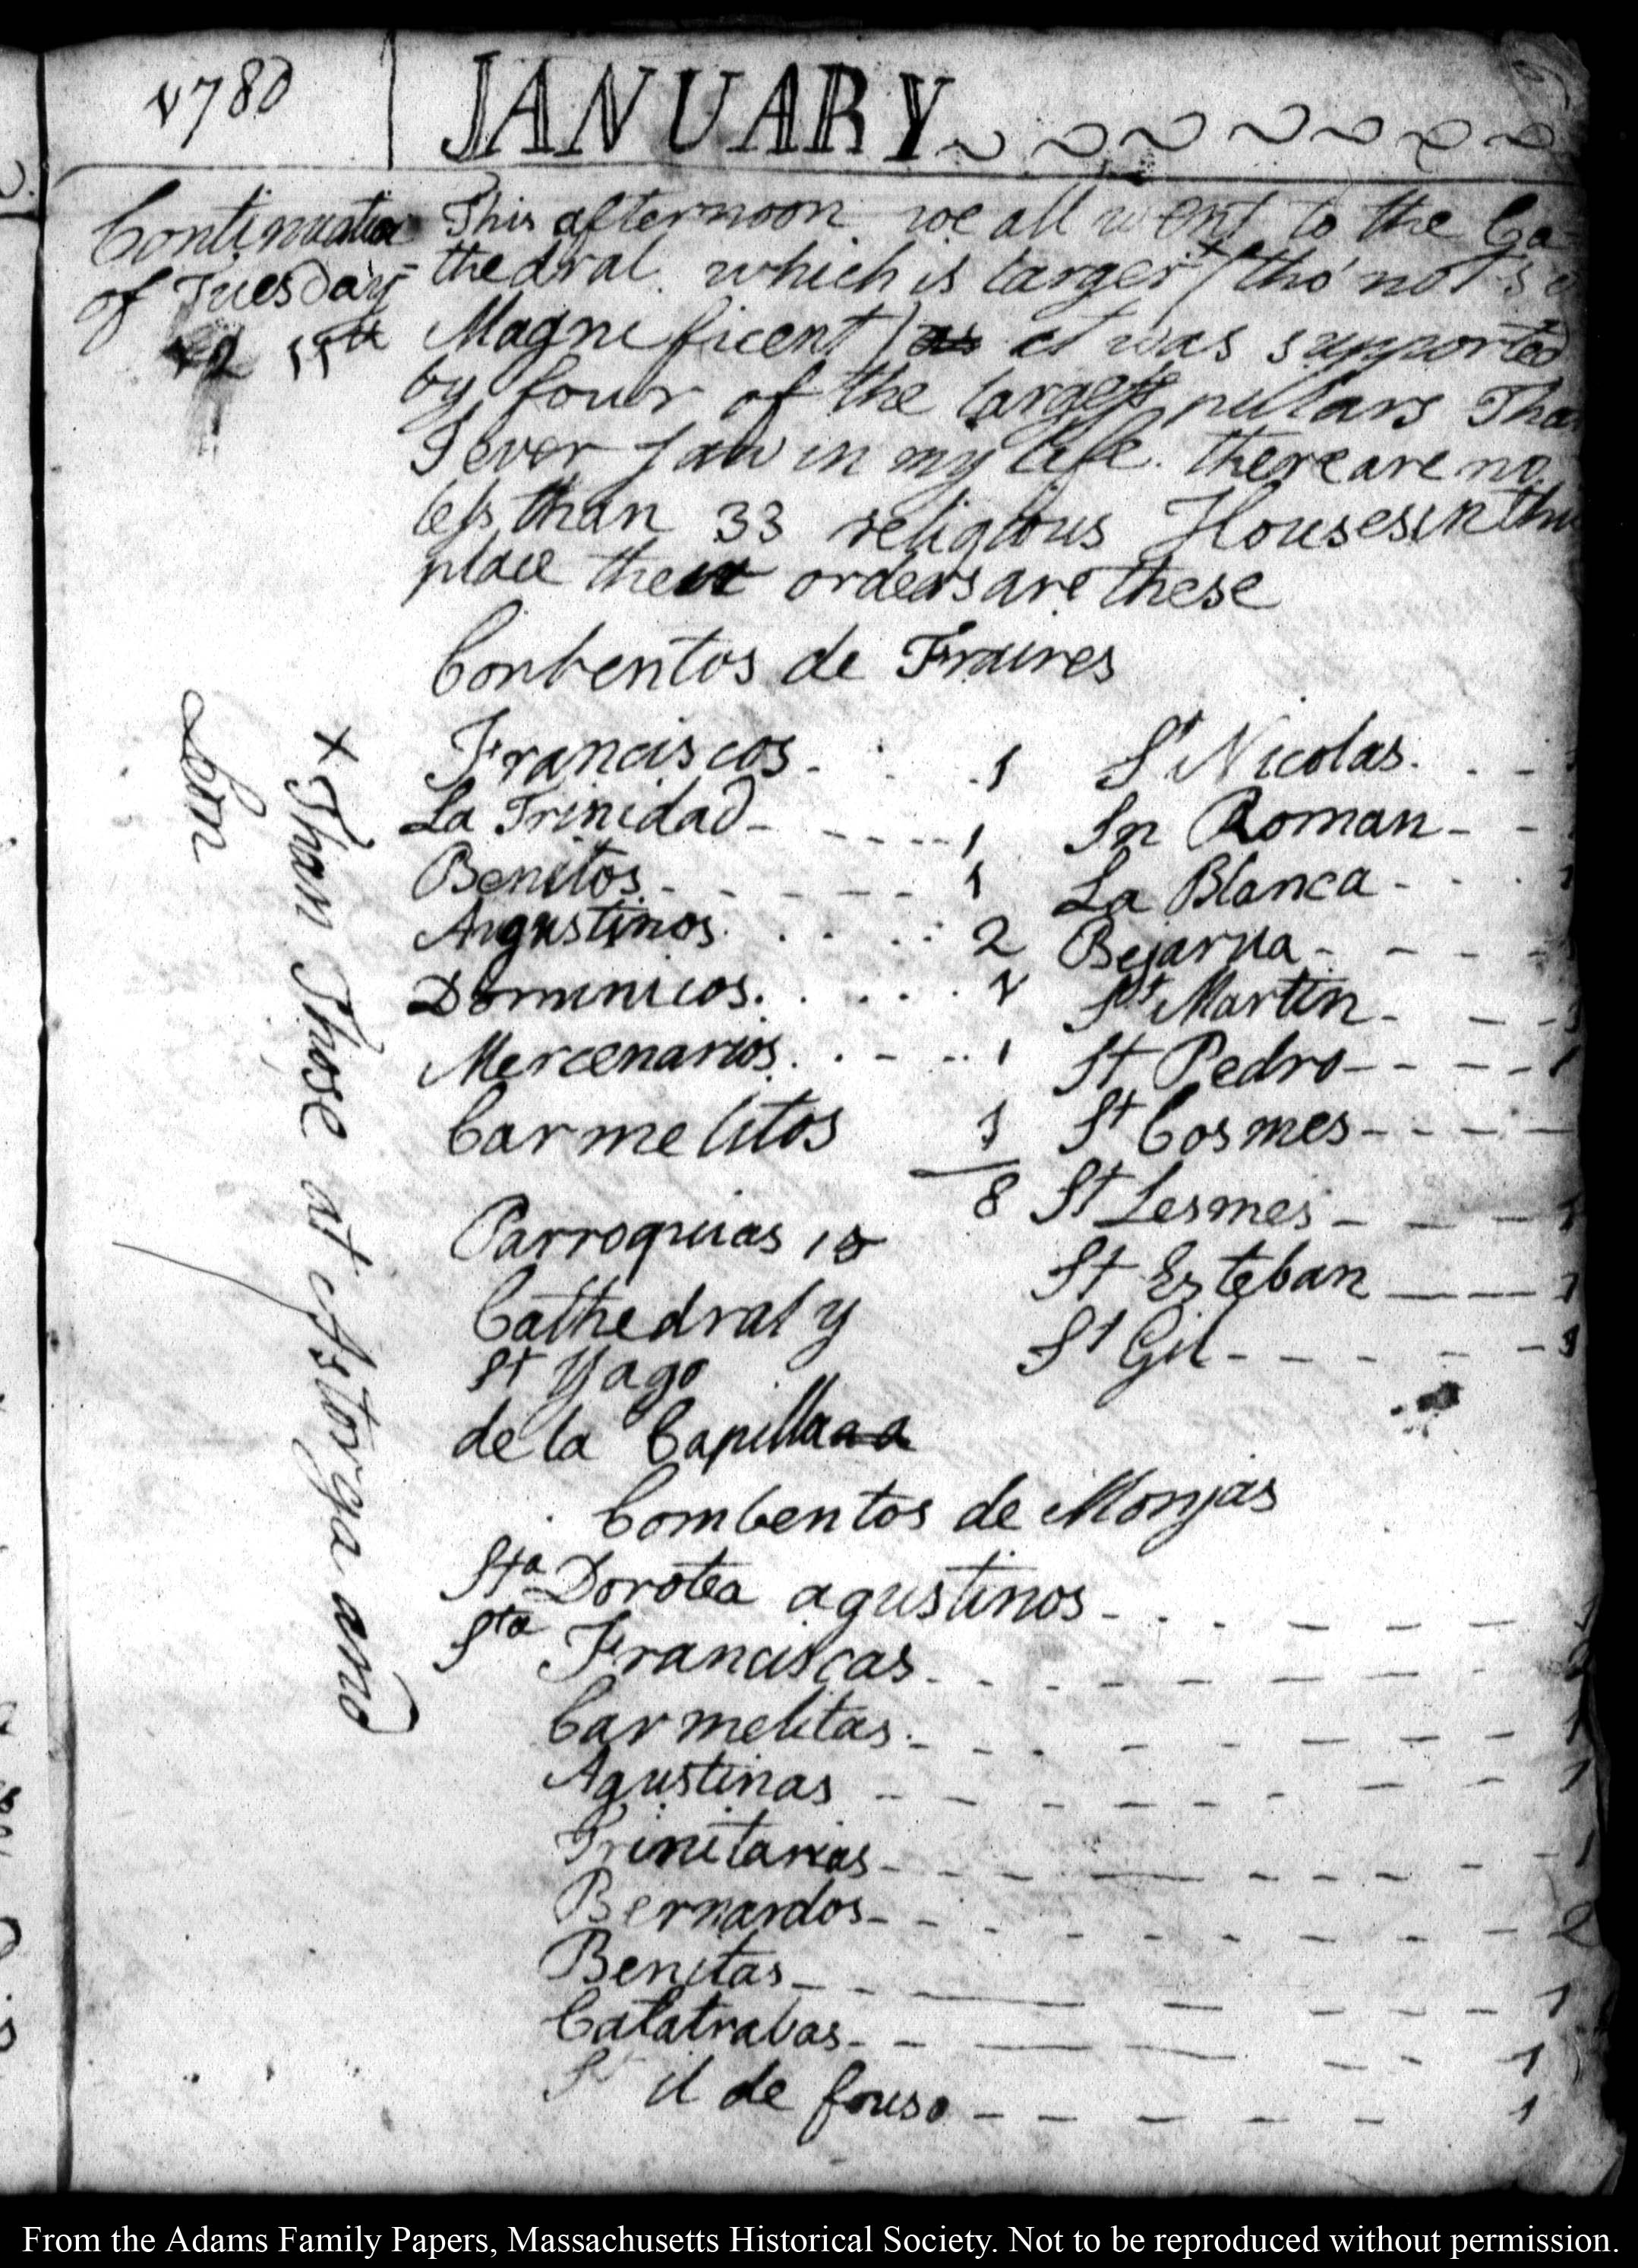 1780
JANUARY
Continuation
of Tuesday
11th
This afternoon we all went to the Ca=
thedral. which is larger + (tho' not so
Magnificent) as it was supported
by four of the largest pillars That
I ever saw in my life. there are no
less than 33 religious Houses in this
place their orders are these
Conbentos de Fraires
Franciscos - . . . 1
La Trinidad - - - - - 1
Benitos - - - - - - 1
Augustinos . . . . . 2
Dominicos . . . . . 1
Mercenarios . . - - . . 1
Carmelitos 1
8
Parroquias 15
Cathedral y
St Yago
de la Capilla
St Nicolas . . -
Sn Roman - -
La Blanca - - . 1
Bejarua - - - -
St Martin - - - 1
St Pedro - - - - 1
St Cosmes - - - -
St Lesmes - - - 1
St Esteban - - - 1
St Gil - - - - - 1
Combentos de Monjas
Sta Dorotea agustinos - . . - - - -
Sta Franciscas - - - - - - - -
Carmelitas . - - . - - - - - 1
Agustinas - - - - - - - - 1
Trinitarias - - - - - - - - 1
Bernardos - - - - - - - - 2
Benitas - - - - - - - 1
Calatrabas - - - - - - 1
St il de fonso - - - - - - 1
+ Than Those at Astorga and
Leon
From the Adams Family Papers, Massachusetts Historical Society. Not to be reproduced without permission.